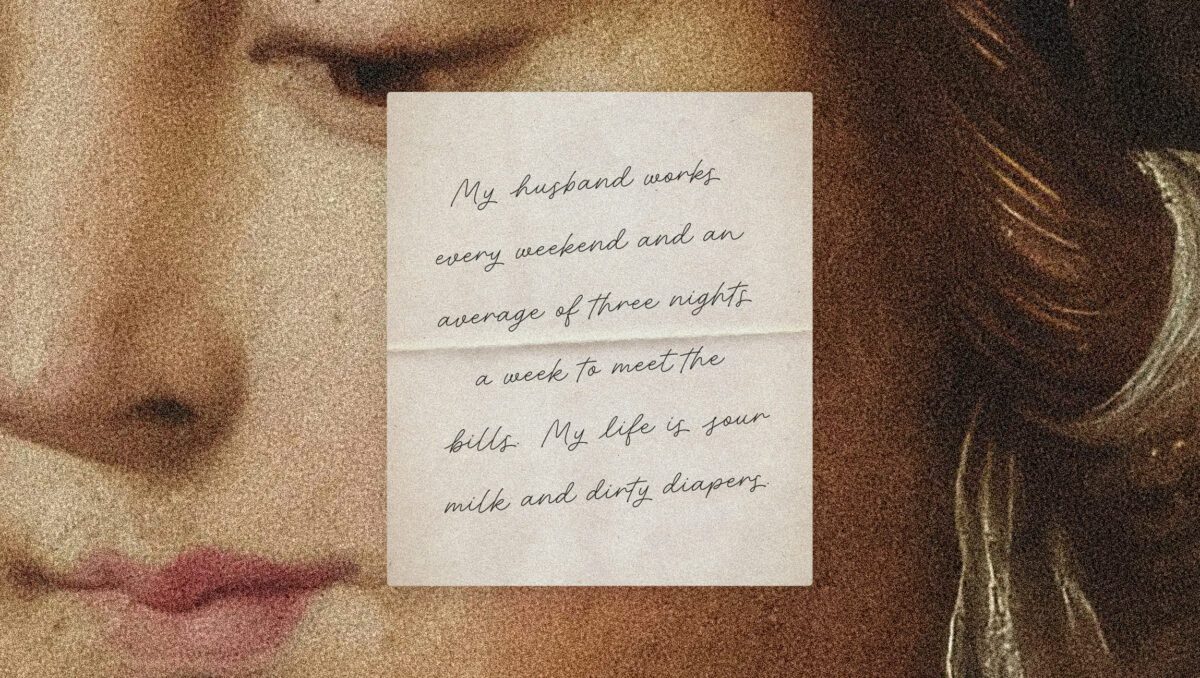 My husband works
every weekend and an
average of three nights
a week to meet the
bills. My life is sour
milk and dirty diapers.